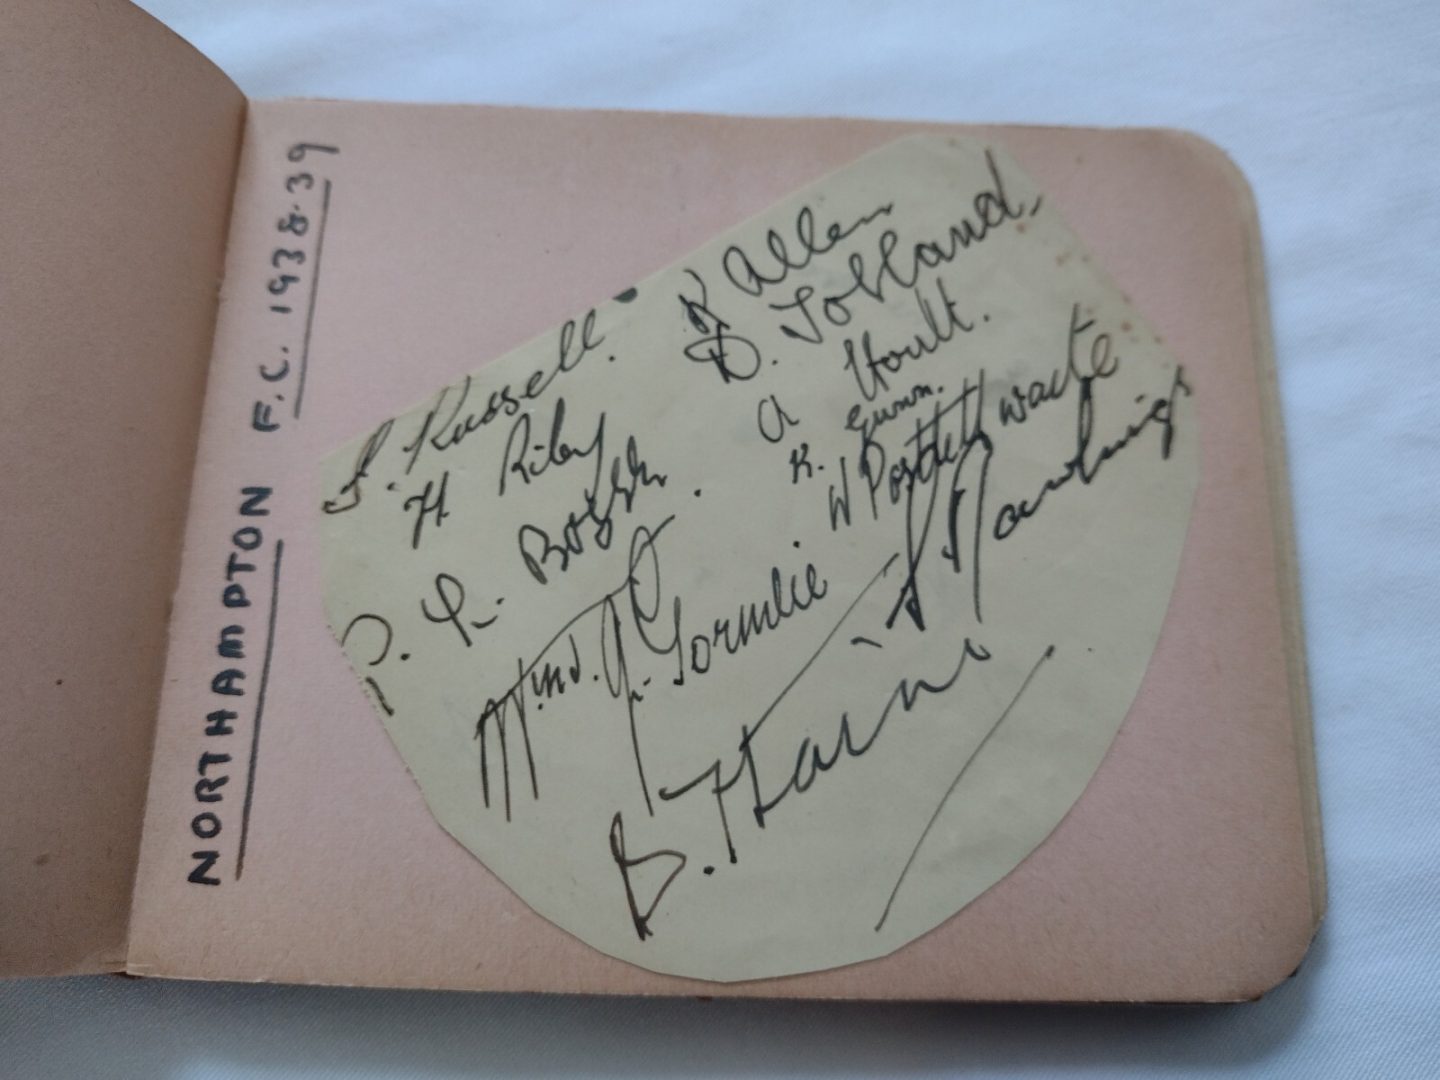 NORTHAMPTON F.C. 1938-39
S. Russell.
H. Riley
K Allen
D. Tolland.
A Hoult.
K. Gunn.
W Postlethwaite
J Rawlings
Wm. J. Gormlie
B. Harris